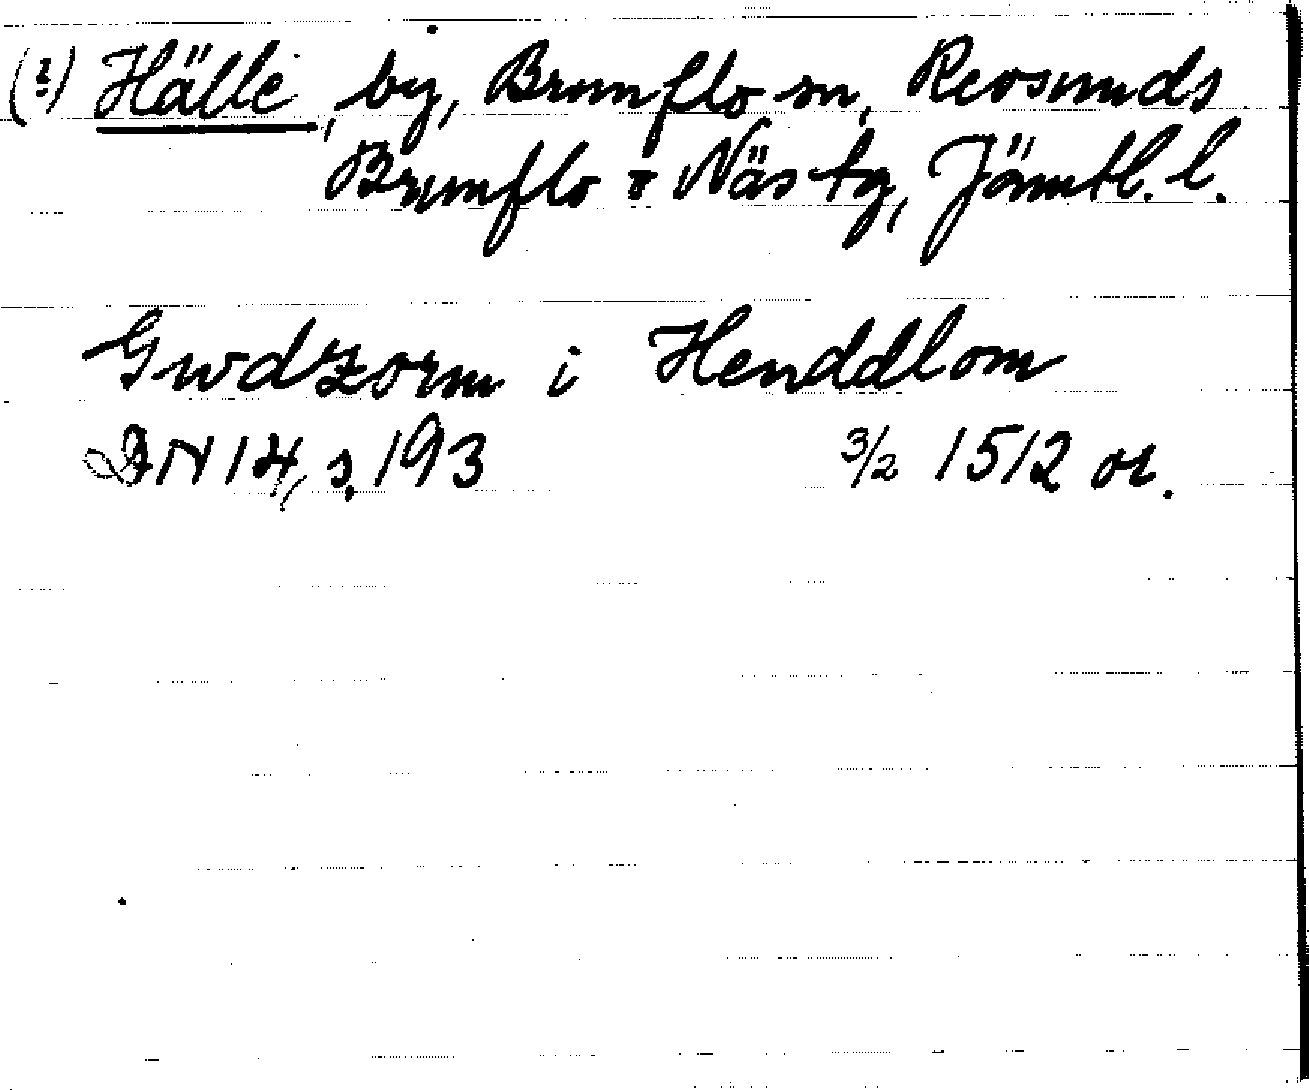 (?) Hälle, by, Brunflo sn, Revsunds
Brunflo o Näs tg, Jämtl. l.
Gwdzorm i Henddlom
DN 14, s. 193 3/2 1512 or.